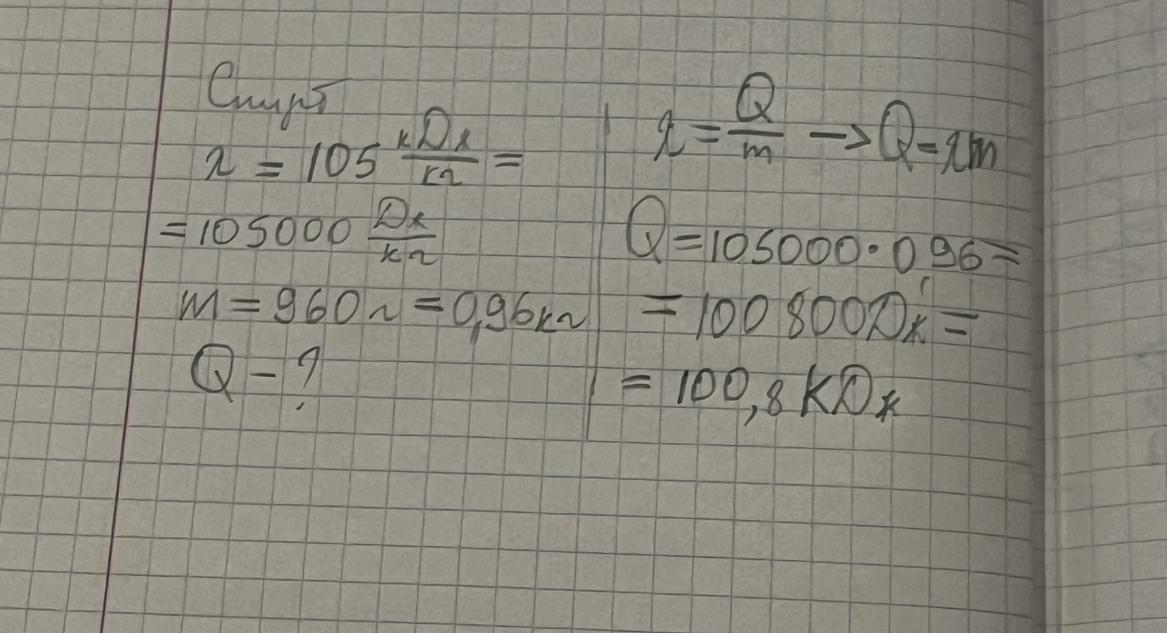 Спирт
λ = 105 кДж/кг =
= 105000 Дж/кг
m = 960 г = 0,96 кг
Q - ?
λ = Q/m —> Q = λm
Q = 105000 · 0,96 =
= 100 800 Дж =
= 100,8 КДж